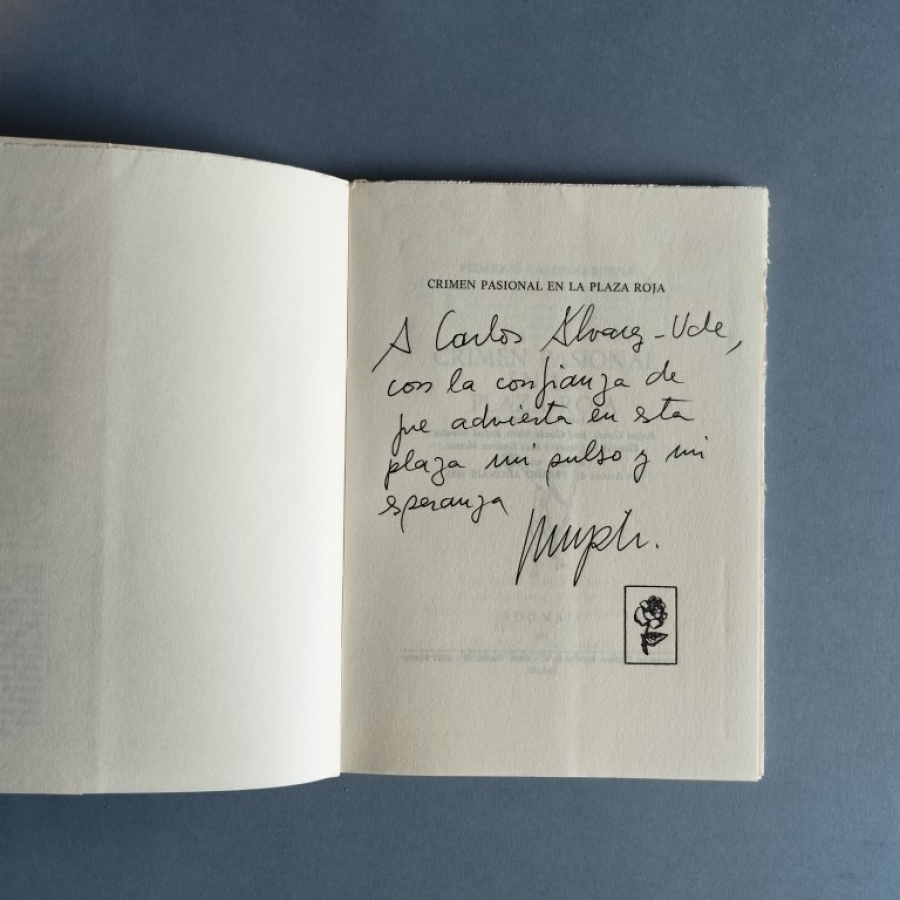 CRIMEN PASIONAL EN LA PLAZA ROJA
A Carlos Alvarez-Ude,
con la confianza de
que advierta en esta
plaza mi pulso y mi
esperanza